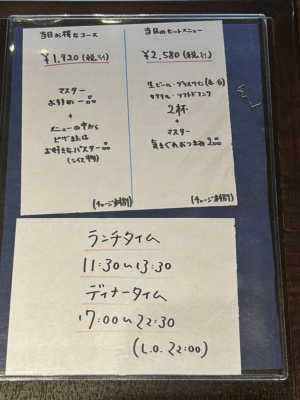 当日お得なコース
¥1,920(税込)
マスター
お好め一品
+
メニューの中から
ピザまたは
お好きなパスタ一品
(ライス物)
(チャージ料別)
当日のセットメニュー
¥2,580(税込)
生ビール・グラスワイン(赤・白)
カクテル・ソフトドリンク
2杯
+
マスター
気まぐれおつまみ2品
(チャージ料別)
ランチタイム
11:30〜13:30
ディナータイム
17:00〜22:30
(L.O. 22:00)